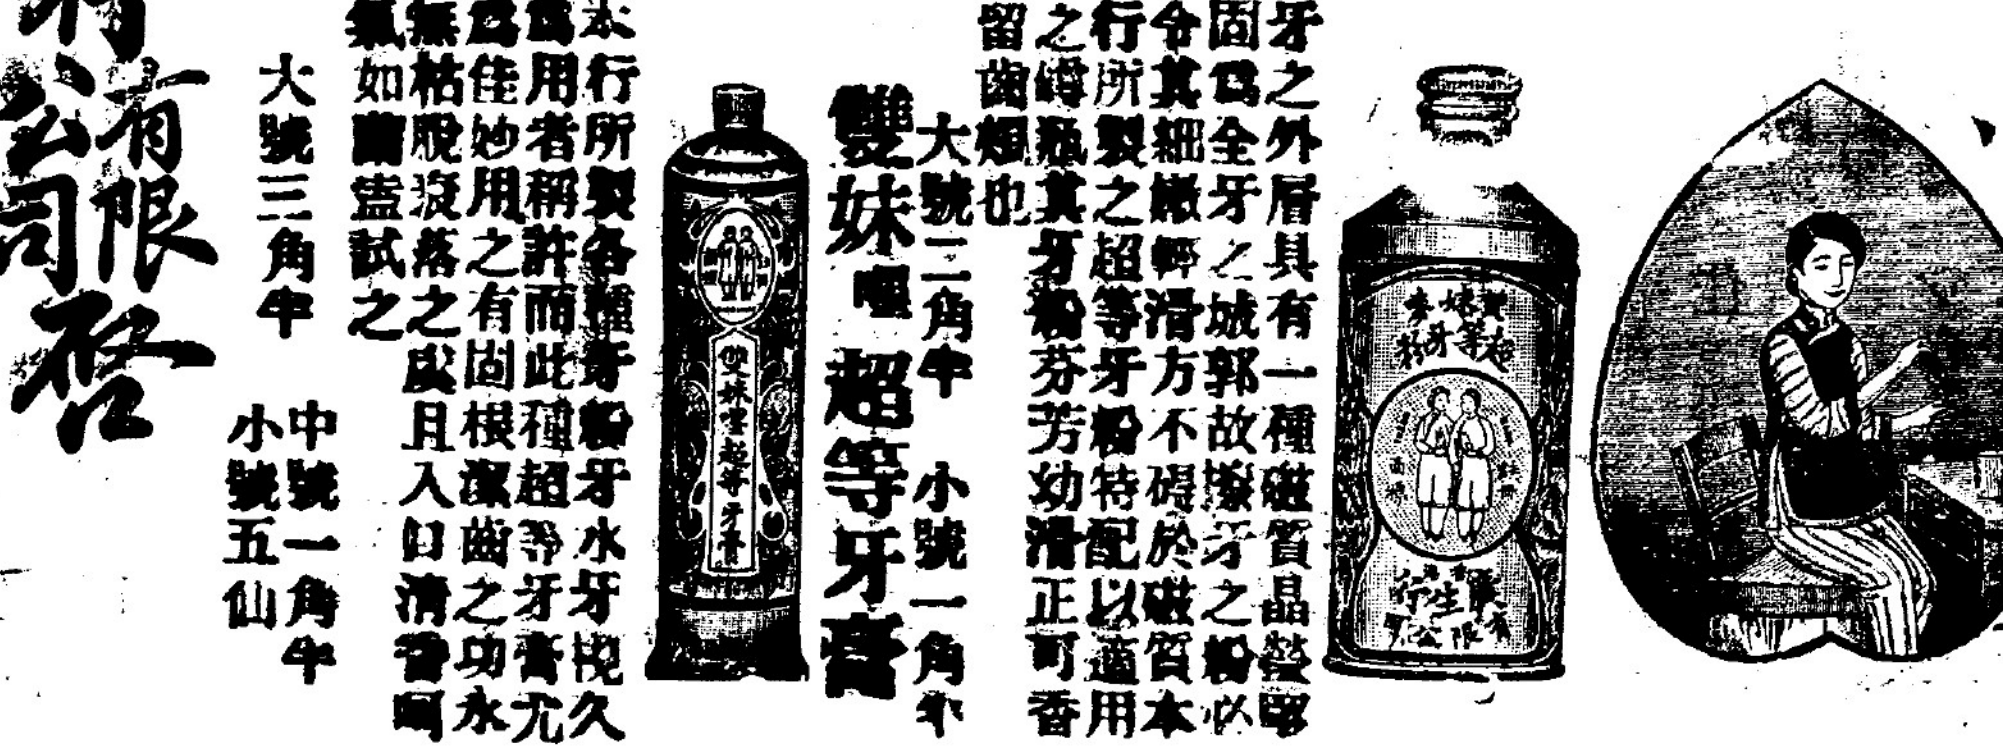 牙之外層具有一種磁質晶瑩堅
固爲全牙之城郭故擦牙之粉必
令其細嫩輕滑方不碍於磁質本
行所製之超等牙粉特配以適用
之罇瓶其牙粉芬芳幼滑正可香
留齒頰也
大號二角半 小號一角半
雙妹嘜超等牙膏
本行所製各種牙粉牙水牙梘久
爲用者稱許而此種超等牙膏尤
爲佳妙用之有固根潔齒之功永
無枯脫衰落之虞且入口清香呵
氣如蘭盍試之
大號三角半
中號一角半
小號五仙
有限
公司
啓
雙妹嘜
超等牙粉
廣生行
有限公司
雙妹嘜超等牙膏